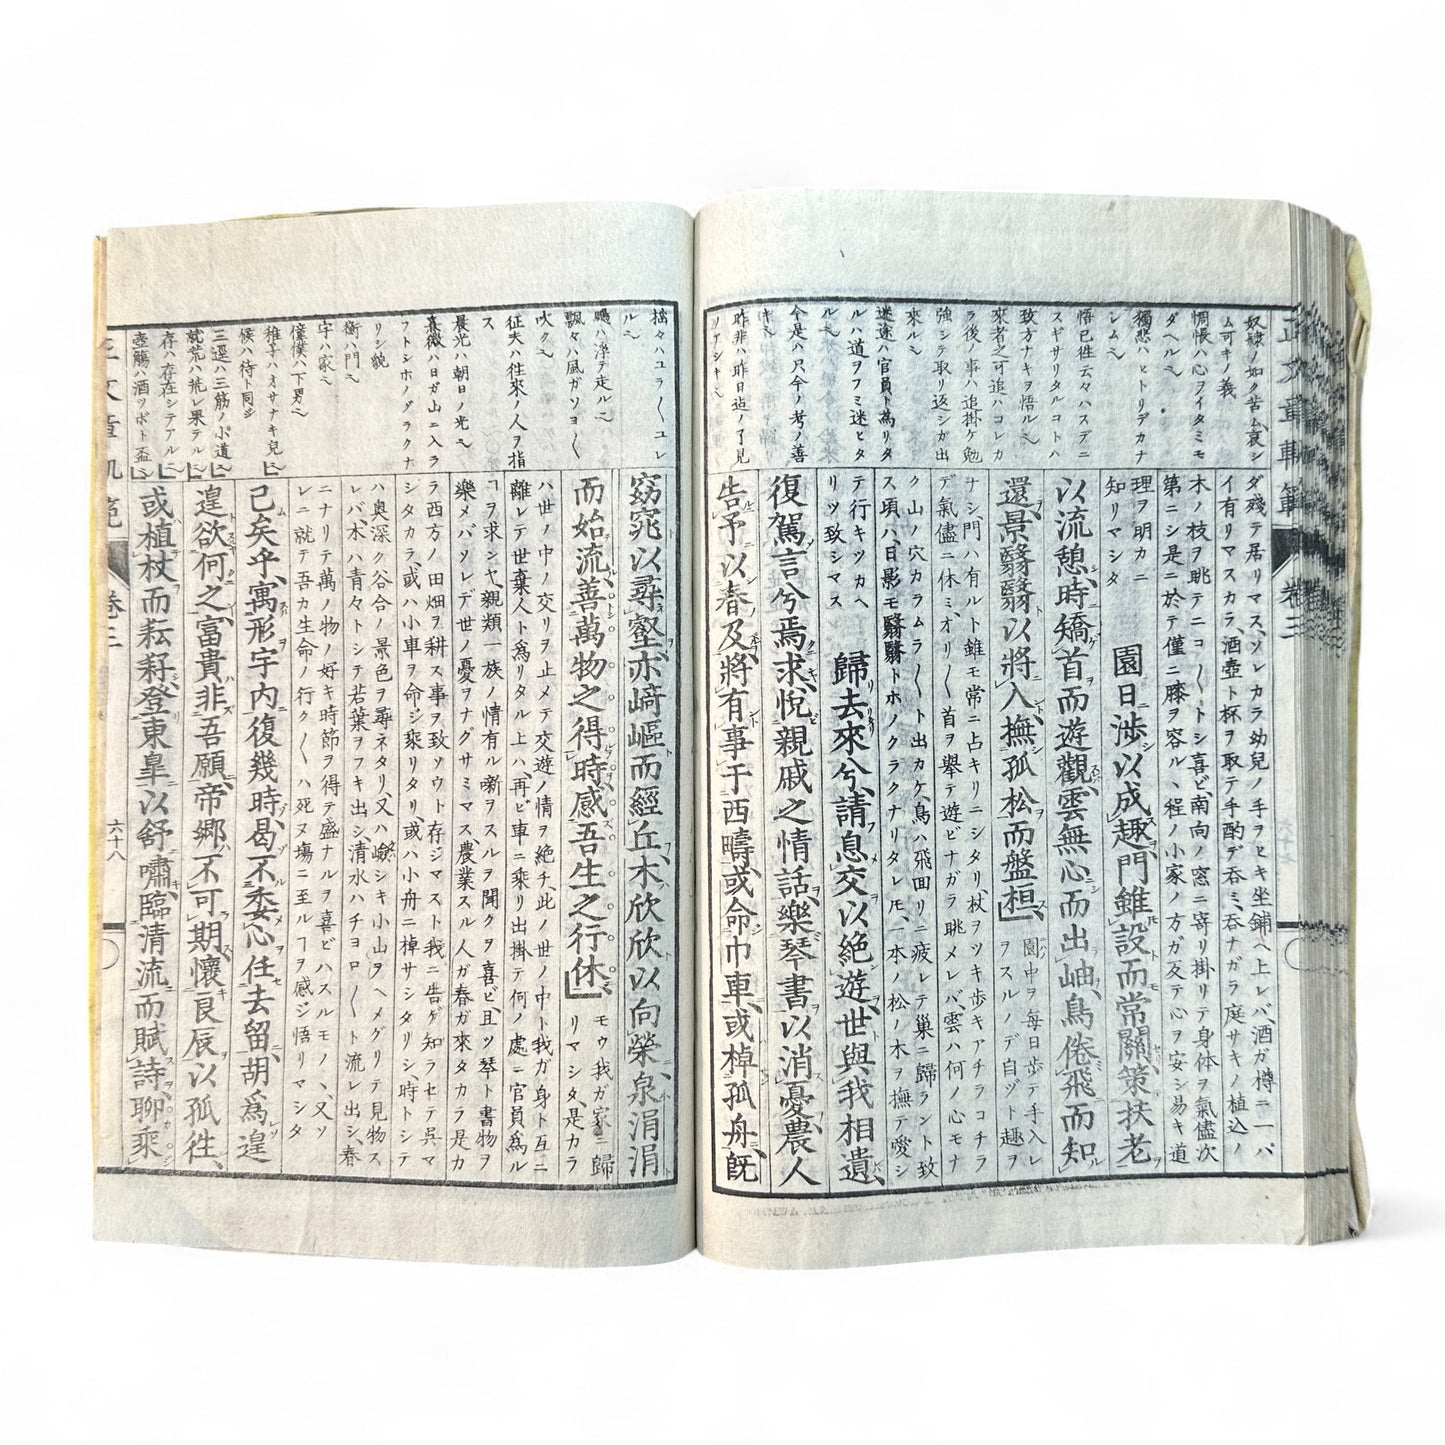 奴隷ノ如ク苦ム、哀シ
ム可キノ義
惆悵ハ心ヲイタミモ
ダヘル𪜈
獨悲ハヒトリデカナ
レム𪜈
悟已徃云々ハスデニ
スギサリタルコトハ
致方ナキヲ悟ル𪜈
來者之可追ハコレカ
ラ後ノ事ハ追掛ケ勉
強シテ取リ返シガ出
來ル𪜈
迷途ハ官員ト為リタ
ルハ道ヲフミ迷ヒタ
ル𪜈
今是ハ只今ノ考ノ善
キ𪜈
昨非ハ昨日迠ノ了見
ノアシキ𪜈
ダ殘テ居リマス、ソレカラ幼兒ノ手ヲヒキ坐鋪ヘ上レバ、酒ガ樽ニ一パ
イ有リマスカラ、酒壺ト杯ヲ取テ手酌デ呑ミ、呑ナガラ庭サキノ植込ノ
木ノ枝ヲ眺テニコ〳〵トシ喜ビ、南向ノ窓ニ寄リ掛リテ身体ヲ氣儘次
第ニシ是ニ於テ僅ニ膝ヲ容ル、程ノ小家ノ方ガ反テ心ヲ安シ易キ道
理ヲ明カニ
知リマシタ
園日渉以成趣、門雖設而常關、策扶老
以流憩、時矯首而遊觀、雲無心而出岫、鳥倦飛而知
還、景翳翳以將入、撫孤松而盤桓、
園中ヲ毎日歩テ手入レ
ヲスルノデ自ヅト趣ヲ
ナシ、門ハ有ルト雖モ常ニ占キリニシタリ、杖ヲツキ歩キアチラコチラ
デ氣儘ニ休ミ、オリ〳〵首ヲ擧テ遊ビナガラ眺メレバ、雲ハ何ノ心モナ
ク山ノ穴カラムラ〳〵ト出カケ、鳥ハ飛回リニ疲レテ巢ニ歸ラント致
ス頃ハ、日影モ翳翳トホノクラクナリタレモ、一本ノ松ノ木ヲ撫テ愛シ
テ行キツカヘ
リツ致シマス
歸去來兮、請息交以絶遊、世與我相遺、
復駕言兮焉求、悅親戚之情話、樂琴書以消憂、農人
告予以春及、將有事于西疇、或命巾車、或棹孤舟、旣
搖々ハユラ〳〵ユレ
ル𪜈
颺ハ浮テ走ル𪜈
飄々ハ風ガソヨ〳〵
吹ク𪜈
征夫ハ徃來ノ人ヲ指
ス
晨光ハ朝日ノ光𪜈
熹微ハ日ガ山ニ入ラ
フトシホノグラクナ
リシ貌
衡ハ門𪜈
宇ハ家𪜈
僮僕ハ下男𪜈
稚子ハオサナキ兒𪜈
候ハ待ト同ジ
三逕ハ三筋ノ小道𪜈
就荒ハ荒レ果テル𪜈
存ハ存在シテアル𪜈
壺觴ハ酒ツボト盃𪜈
窈窕以尋壑、亦崎嶇而經丘、木欣欣以向榮、泉涓涓
而始流、善萬物之得時、感吾生之行休、
モウ我ガ家ニ歸
リマシタ、是カラ
ハ世ノ中ノ交リヲ止メテ交遊ノ情ヲ絶チ、此ノ世ノ中ト我ガ身ト互ニ
離レテ世棄人ト為リタル上ハ、再ビ車ニ乘リ出掛テ何ノ處ニ官員為ル
ヿヲ求ンヤ、親類一族ノ情有ル噺ヲスルヲ聞クヲ喜ビ、且ツ琴ト書物ヲ
樂メバソレデ世ノ憂ヲナグサミマス、農業スル人ガ春ガ來タカラ是カ
ラ西方ノ田畑ヲ耕ス事ヲ致ソウト存ジマスト我ニ告ゲ知ラセテ呉マ
シタカラ、或ハ小車ヲ命ジ乘リタリ、或ハ小舟ニ棹サシタリシ、時トシテ
ハ奥深ク谷合ノ景色ヲ尋ネタリ、又ハ嶮シキ小山ヲヘメグリテ見物ス
レバ、木ハ青々トシテ若葉ヲフキ出シ清水ハチヨロ〳〵ト流レ出シ、春
ニナリテ萬ノ物ノ好キ時節ヲ得テ盛ナルヲ喜ビハスルモノヽ、又ソ
レニ就テ吾カ生命ノ行ク〳〵ハ死ヌ塲ニ至ルヿヲ感ジ悟リマシタ
已矣乎、寓形宇内復幾時、曷不委心任去留、胡爲遑
遑欲何之、富貴非吾願、帝郷不可期、懷良辰以孤徃、
或植杖而耘耔、登東皐以舒嘯、臨清流而賦詩、聊乘
正文章軌範
卷三
六十八